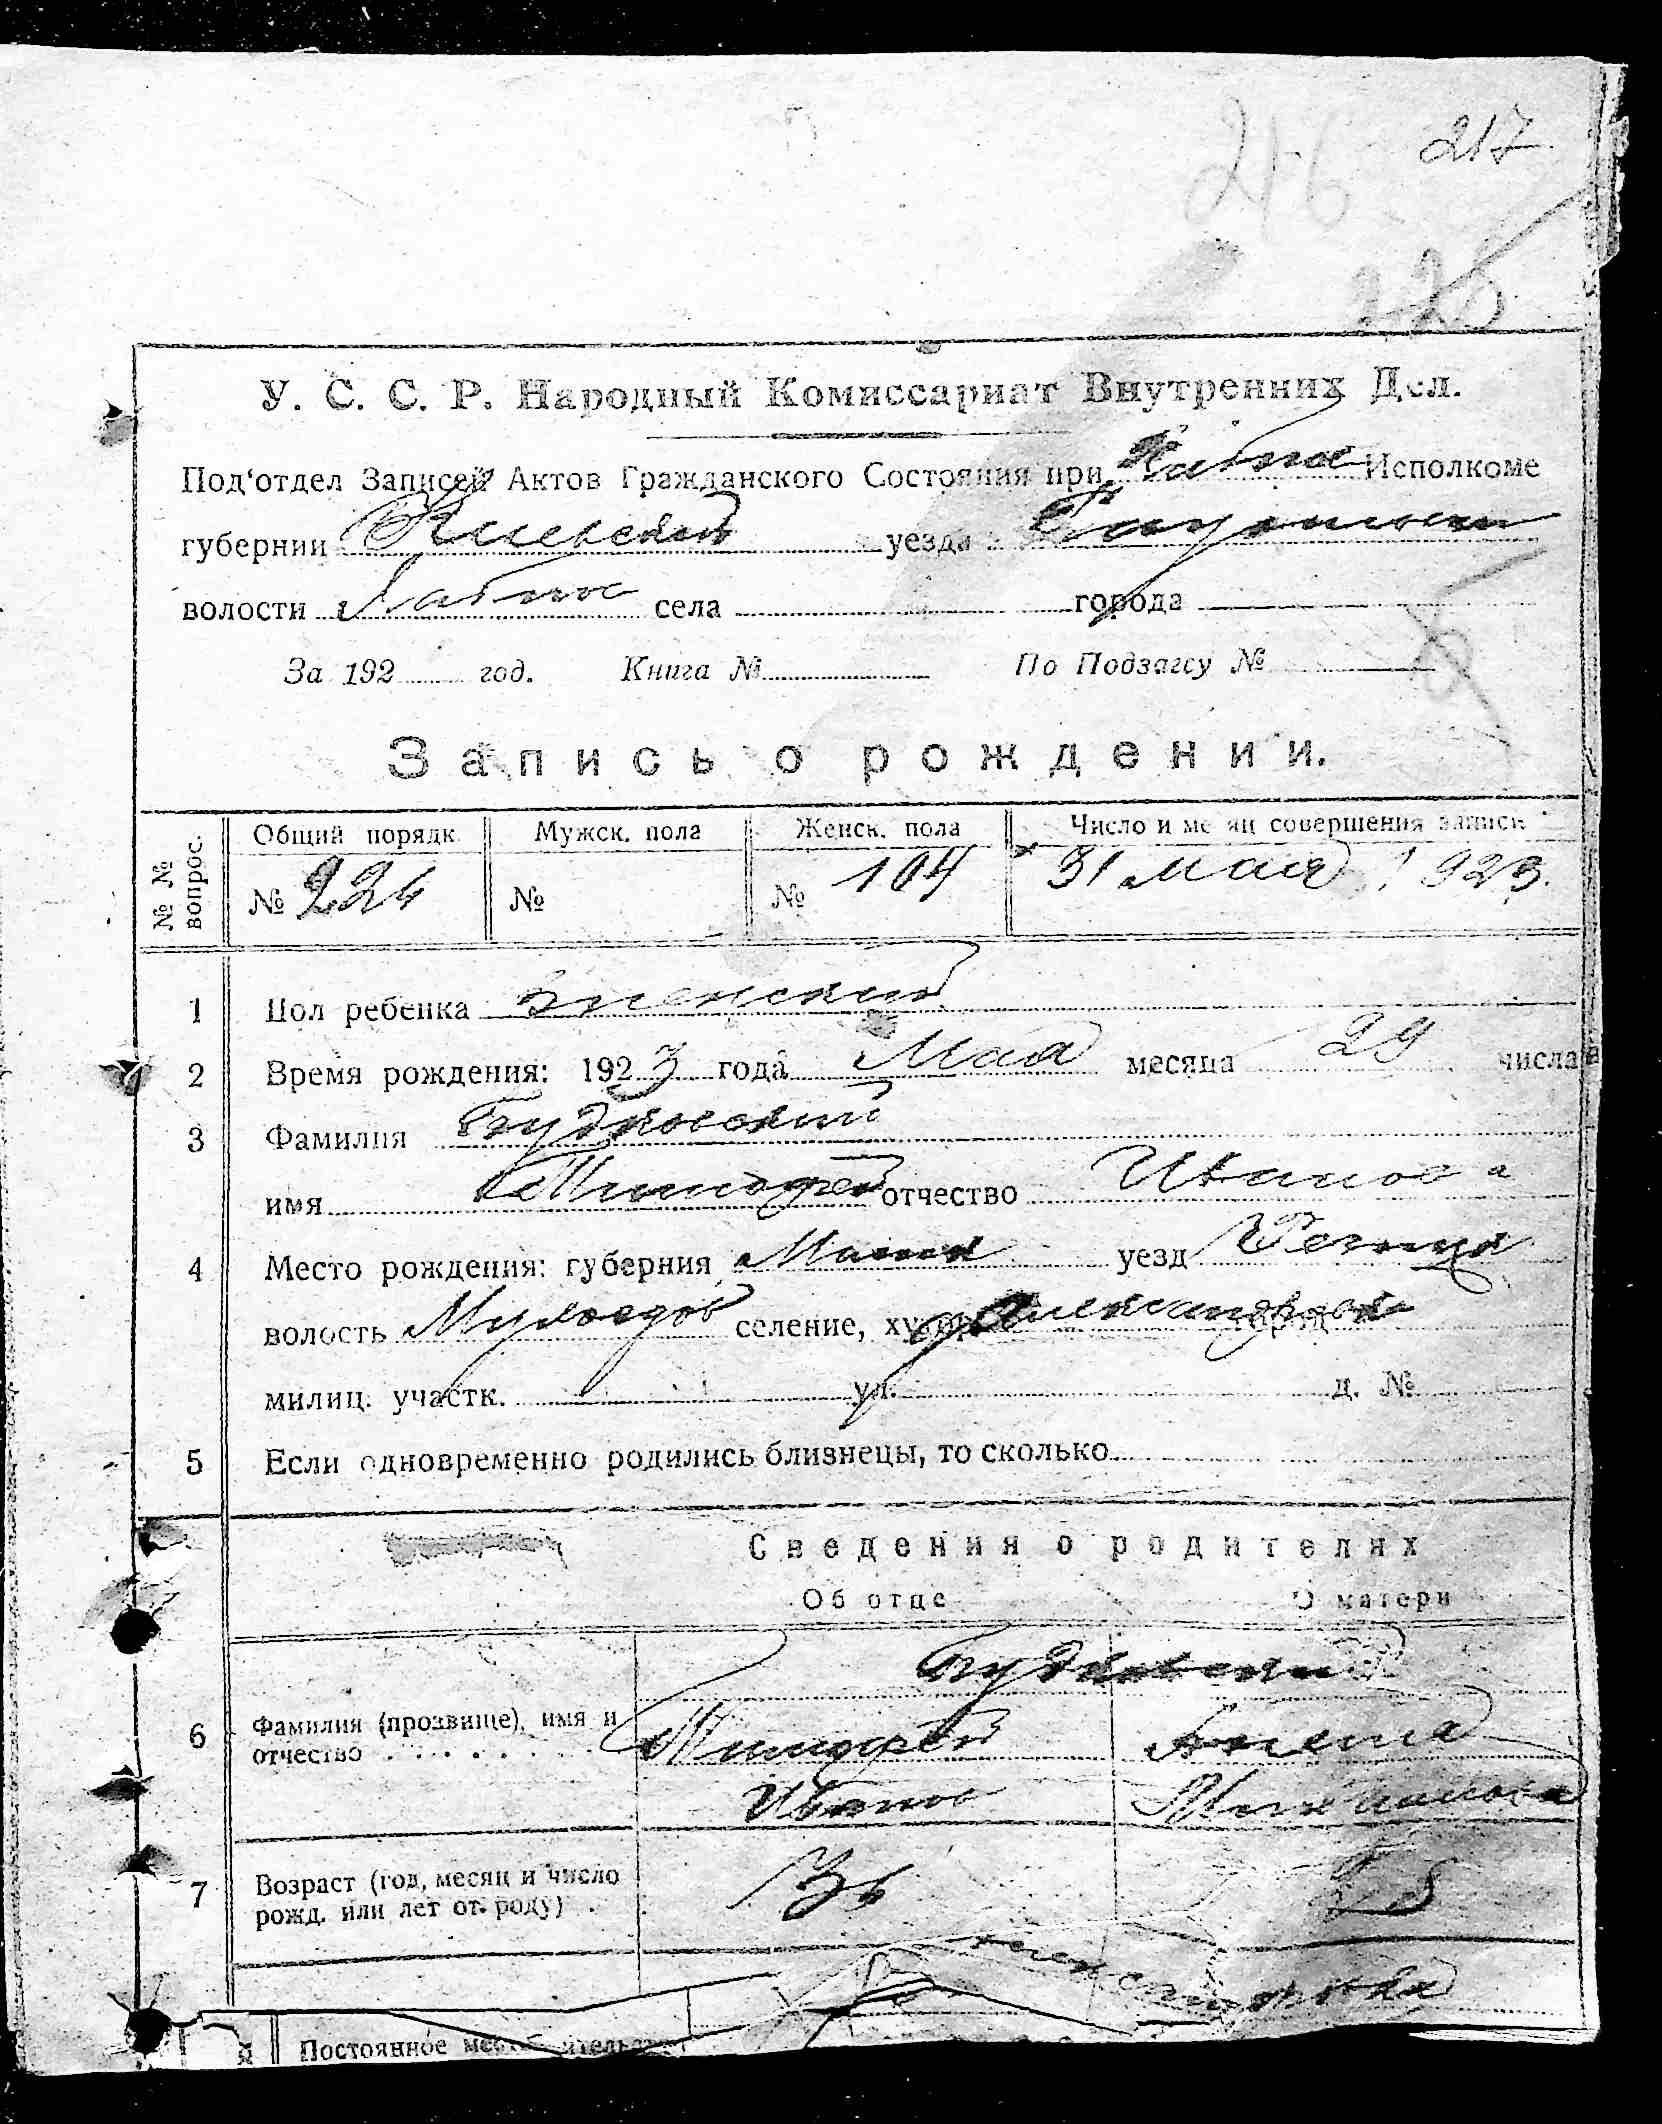 217
216
225
У. С. С. Р. Народный Комиссариат Внутренних Дел.
Под'отдел Записей Актов Гражданского Состояния при Хабное Исполкоме
губернии Киевской уезда
волости Хабное села города
За 192 год. Книга № По Подзагсу №
Запись о рождении.
№ № вопрос. Общий порядк. Мужск. пола Женск. пола Число и месяц совершения записи
№ 224 № № 104 31 Мая 1923.
1 Пол ребенка женский
2 Время рождения: 1923 года Мая месяца 29 числа
3 Фамилия Будковский
имя Тимофей отчество Иванова
4 Место рождения: губерния уезд Речица
волость селение, хутор Александровка город
милиц. участк. ул. д. №
5 Если одновременно родились близнецы, то сколько
Сведения о родителях
Об отце О матери
Будковский
6 Фамилия (прозвище), имя и Тимофей
отчество Иванов
7 Возраст (год, месяц и число 36 25
рожд. или лет от роду)
Александровка
Постоянное место